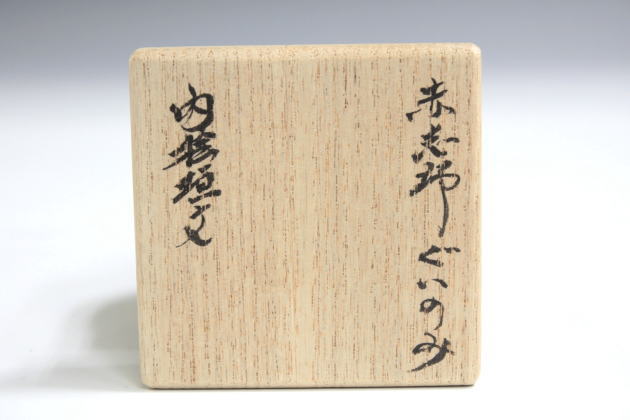 赤志野ぐいのみ
内絵垣文